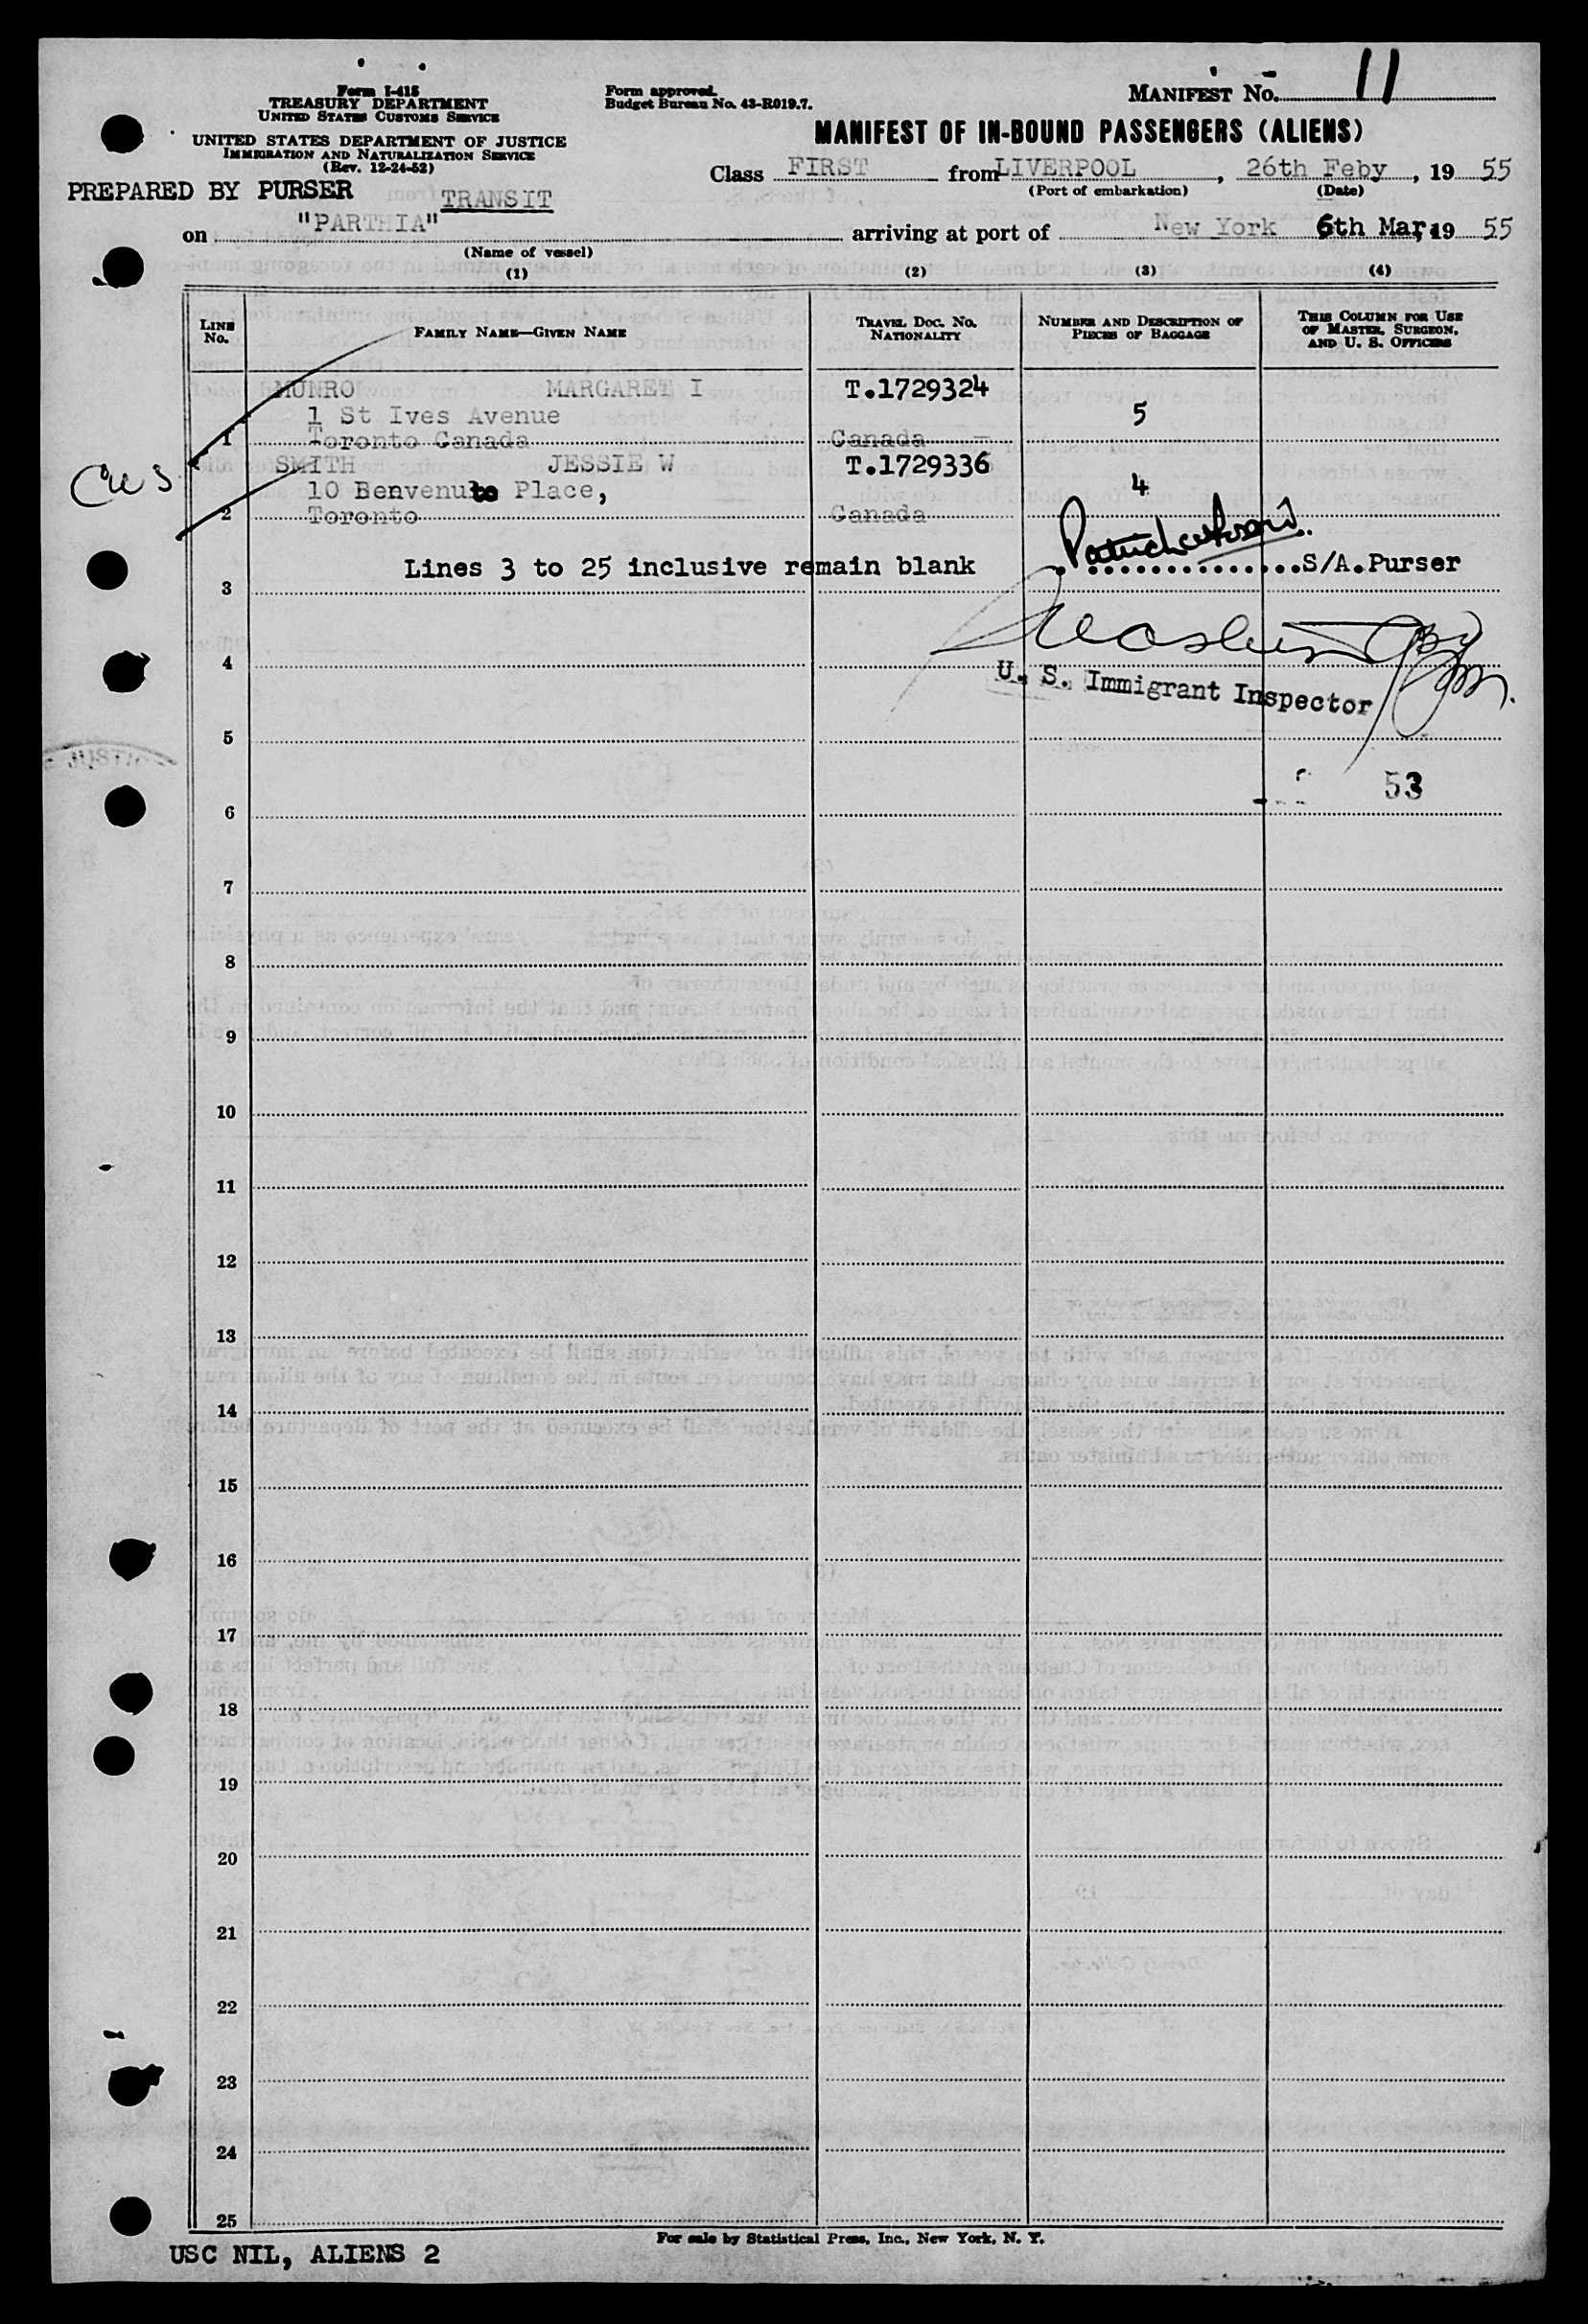 Form I-415
TREASURY DEPARTMENT
UNITED STATES CUSTOMS SERVICE
UNITED STATES DEPARTMENT OF JUSTICE
IMMIGRATION AND NATURALIZATION SERVICE
(Rev. 12-24-52)
PREPARED BY PURSER
TRANSIT
Form approved.
Budget Bureau No. 43-R019.7.
MANIFEST No. 11
MANIFEST OF IN-BOUND PASSENGERS (ALIENS)
Class FIRST from LIVERPOOL, 26th Feby, 19 55
(Port of embarkation) (Date)
on "PARTHIA" arriving at port of New York 6th Mar, 19 55
(Name of vessel)
(1) (2) (3) (4)
LINE No. FAMILY NAME—GIVEN NAME TRAVEL DOC. NO. NATIONALITY NUMBER AND DESCRIPTION OF PIECES OF BAGGAGE THIS COLUMN FOR USE OF MASTER, SURGEON, AND U. S. OFFICERS
MUNRO MARGARET I T.1729324
1 St Ives Avenue 5
1 Toronto Canada Canada
SMITH JESSIE W T.1729336
10 Benvenuto Place, 4
2 Toronto Canada
Lines 3 to 25 inclusive remain blank S/A.Purser
3
4
U. S. Immigrant Inspector
5
53
6
7
8
9
10
11
12
13
14
15
16
17
18
19
20
21
22
23
24
25
For sale by Statistical Press, Inc., New York, N. Y.
USC NIL, ALIENS 2